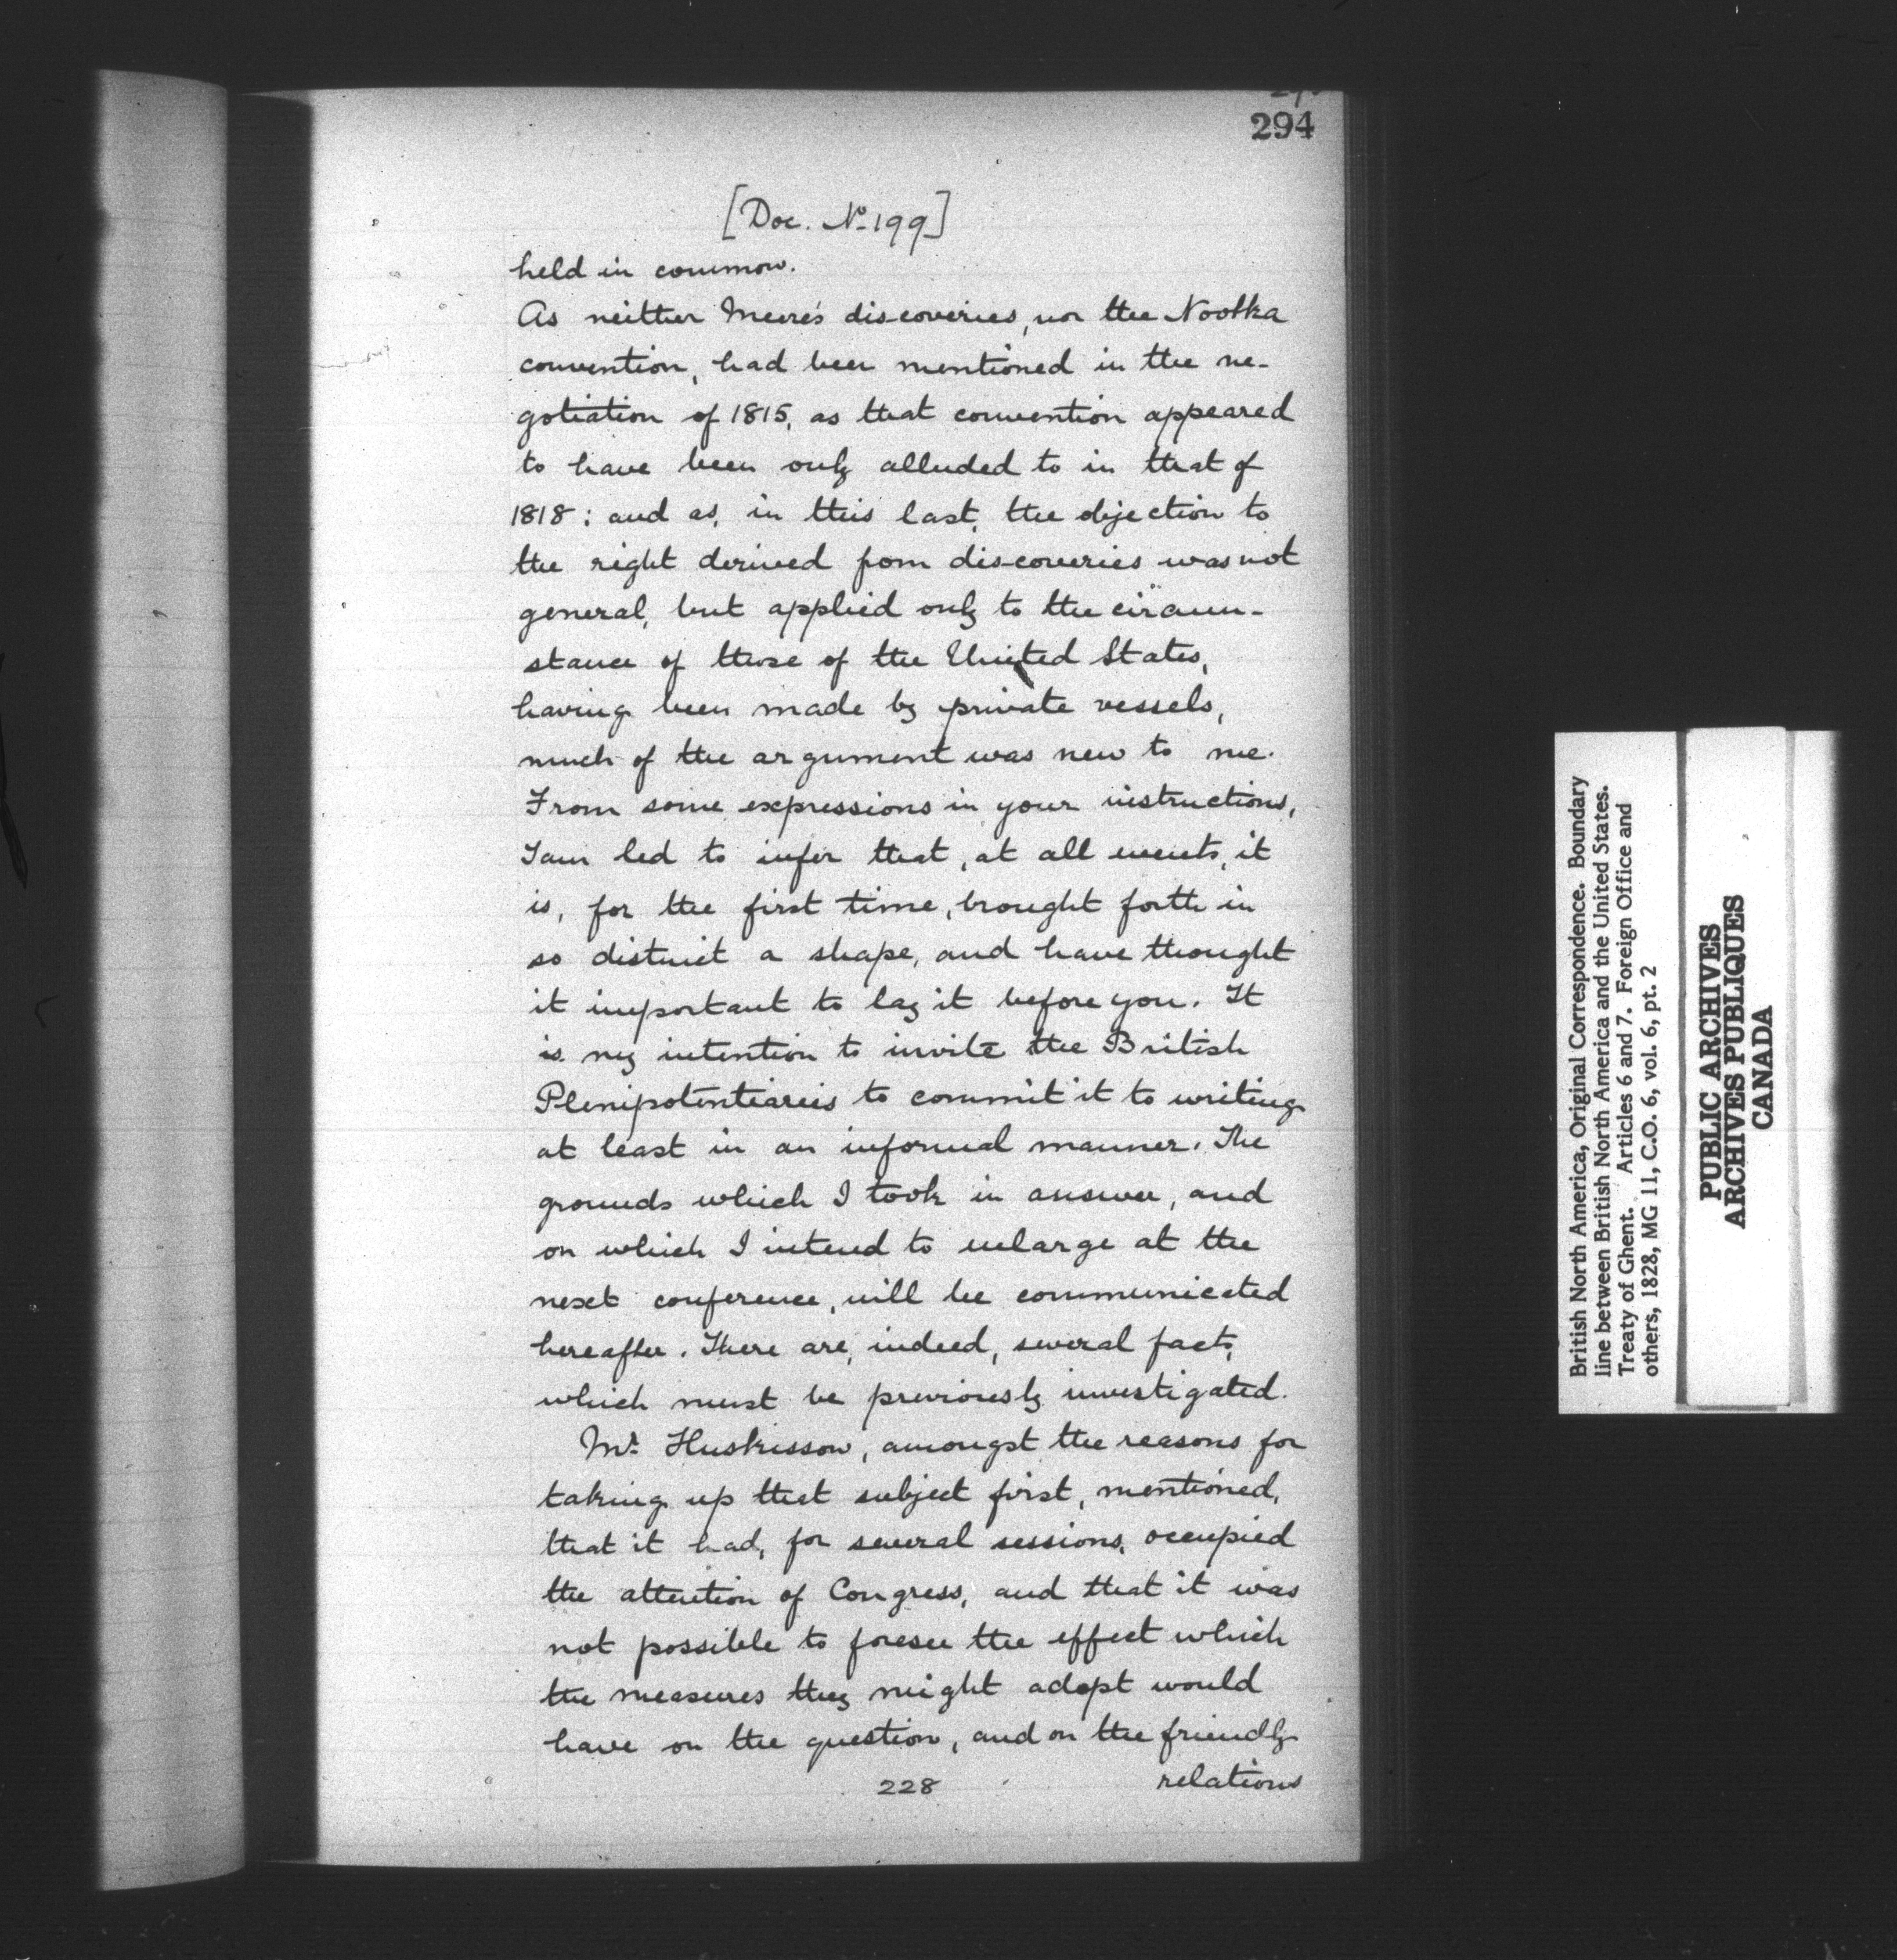 294
[Doc. No 199]
held in common.
As neither Meare's discoveries, nor the Nootka
convention, had been mentioned in the ne-
gotiation of 1815, as that convention appeared
to have been only alluded to in that of
1818; and as, in this last, the objection to
the right derived from discoveries was not
general, but applied only to the circum-
stance of those of the United States,
having been made by private vessels,
much of the argument was new to me.
From some expressions in your instructions,
I am led to infer that, at all events, it
is, for the first time, brought forth in
so distinct a shape, and have thought
it important to lay it before you. It
is my intention to invite the British
Plenipotentiaries to commit it to writing
at least in an informal manner. The
grounds which I took in answer, and
on which I intend to enlarge at the
next conference, will be communicated
hereafter. There are, indeed, several facts,
which must be previously investigated.
Mr. Huskisson, amongst the reasons for
taking up that subject first, mentioned,
that it had, for several sessions, occupied
the attention of Congress, and that it was
not possible to foresee the effect which
the measures they might adopt would
have on the question, and on the friendly
228 relations
British North America, Original Correspondence. Boundary
line between British North America and the United States.
Treaty of Ghent. Articles 6 and 7. Foreign Office and
others, 1828, MG 11, C.O. 6, vol. 6, pt. 2
PUBLIC ARCHIVES
ARCHIVES PUBLIQUES
CANADA